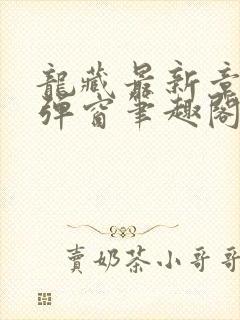 龍藏最新章
彈窗筆趣閣
賣奶茶小哥哥